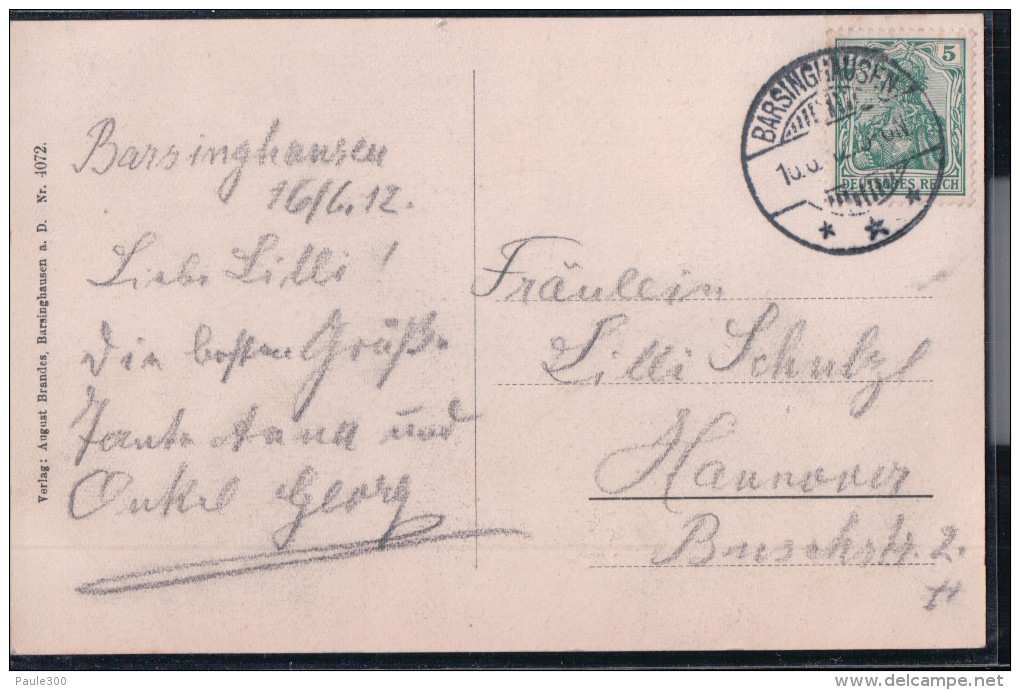 Verlag: August Brandes, Barsinghausen a. D. Nr. 4072.
Barsinghausen
16/6.12.
Liebe Lilli!
die besten Grüße
Tante Anna und
Onkel Georg
Fräulein
Lilli Schulze
Hannover
Buschstr. 2.
BARSINGHAUSEN
5
DEUTSCHES REICH
Paule300
www.delcampe.net